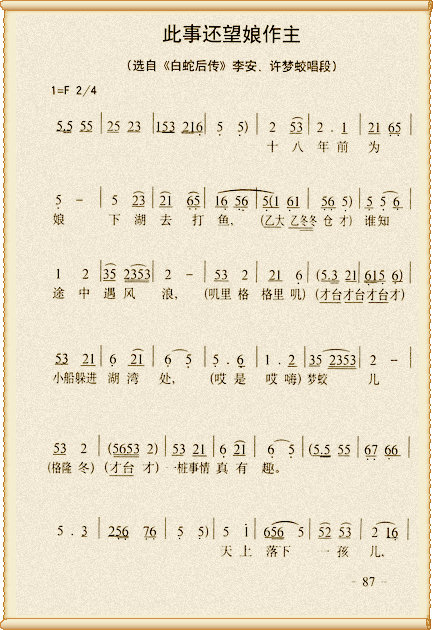 此事还望娘作主
(选自《白蛇后传》李安、许梦蛟唱段)
1=F 2/4
5.5 55 | 25 23 | 153 216 | 5 5) | 2 53 | 2 . 1 | 21 65 |
十 八 年 前 为
5 - | 5 23 | 21 65 | 16 56 | 5(1 61 | 56 5) | 5 5 6 |
娘 下 湖 去 打 鱼, (乙大 乙冬冬 仓 才) 谁知
1 2 | 35 2353 | 2 - | 53 2 | 21 6 | (5.3 21 | 615 6) |
途 中 遇 风 浪, (叽里 格 格里 叽) (才台才台才台才)
53 21 | 6 21 | 6 5 | 5 . 6 | 1 . 2 | 35 2353 | 2 - |
小船躲进 湖 湾 处, (哎 是 哎 嗨) 梦蛟 儿
53 2 | (5653 2) | 53 21 | 6 21 | 6 5 | (5.5 55 | 67 66 |
(格隆 冬) (才台 才) 一桩事情 真 有 趣。
5 . 3 | 256 76 | 5 5) | 5 1 | 656 5 | 52 53 | 2 16 |
天 上 落下 一 孩 儿,
- 87 -